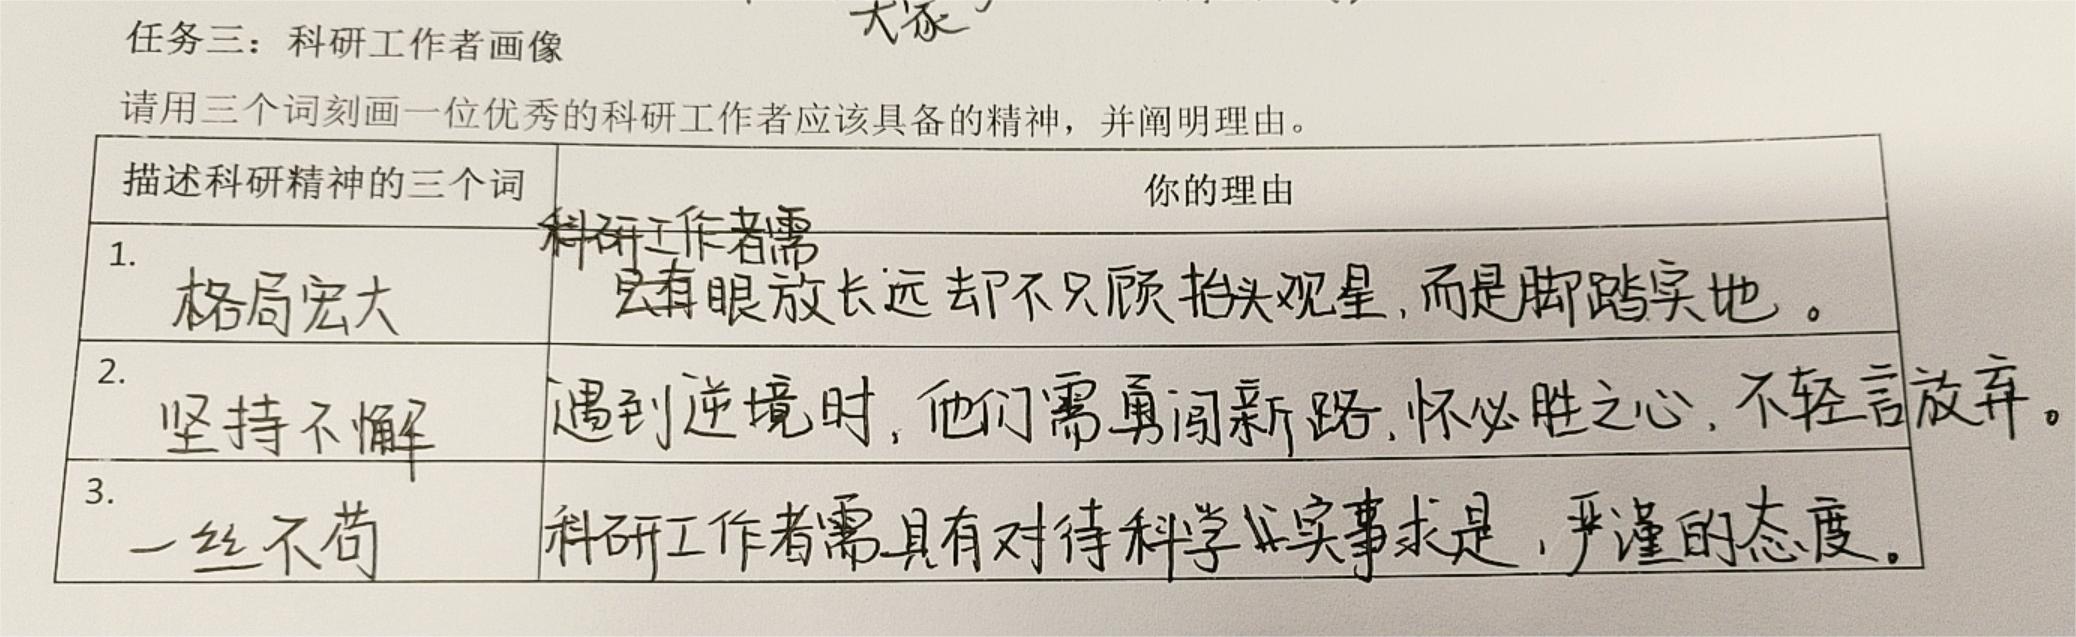 大家
任务三：科研工作者画像
请用三个词刻画一位优秀的科研工作者应该具备的精神，并阐明理由。
描述科研精神的三个词 你的理由
科研工作者需
1. 格局宏大 具有眼放长远却不只顾抬头观星，而是脚踏实地。
2. 坚持不懈 遇到逆境时，他们需勇闯新路，怀必胜之心，不轻言放弃。
3. 一丝不苟 科研工作者需具有对待科学以实事求是，严谨的态度。